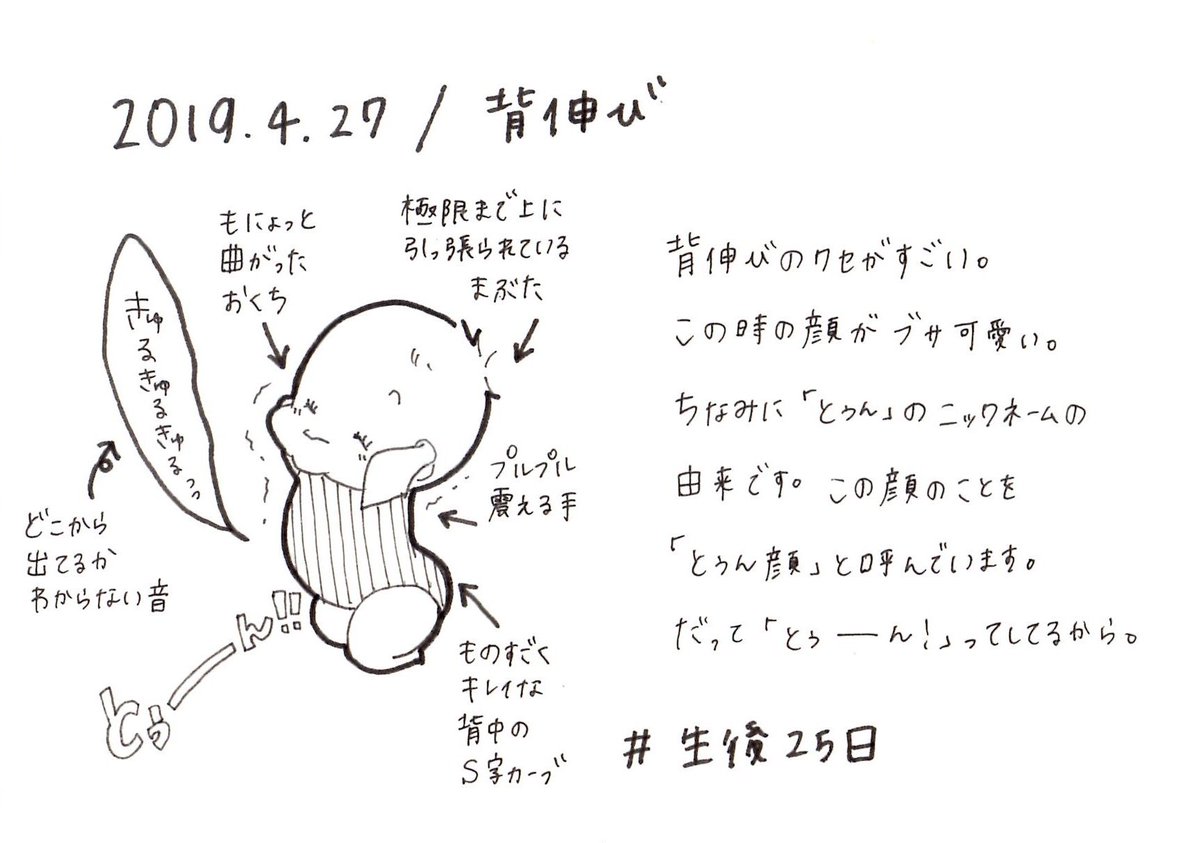 2019.4.27 / 背伸び
もにょっと
曲がった
おくち
極限まで上に
引っ張られている
まぶた
きゅるきゅるきゅるっっ
どこから
出てるか
わからない音
プルプル
震える手
ものすごく
キレイな
背中の
S字カーブ
とぅーーん!!
背伸びのクセがすごい。
この時の顔がブサ可愛い。
ちなみに「とぅん」のニックネームの
由来です。この顔のことを
「とぅん顔」と呼んでいます。
だって「とぅーん!」ってしてるから。
#生後25日